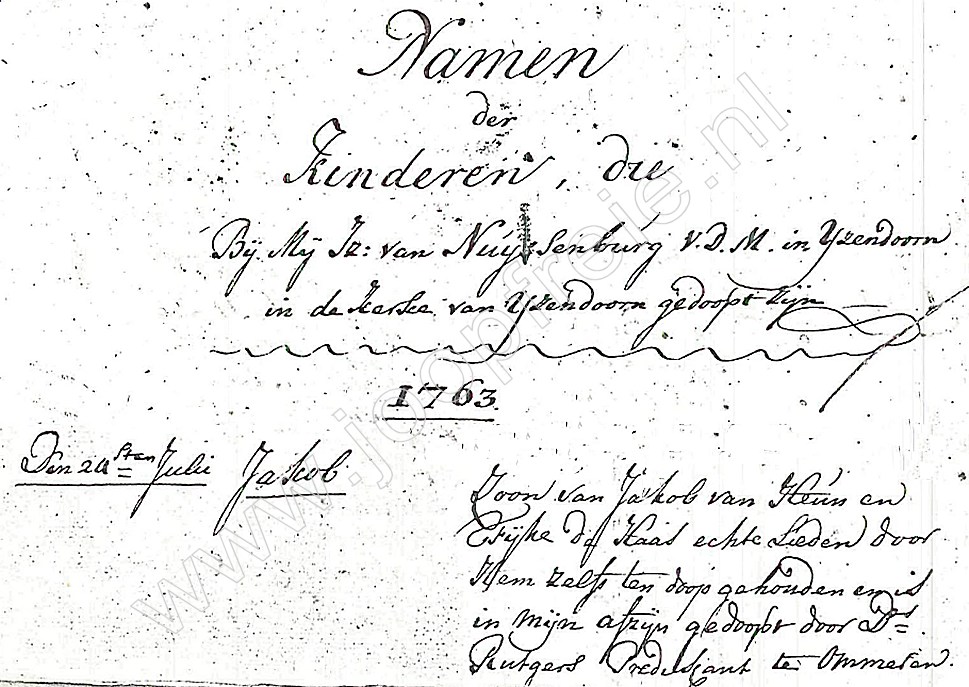 Namen
der
Kinderen, die
Bij Mij Iz: van Nuijssenburg V.D.M. in Yzendoorn
in de kerke van Yzendoorn gedoopt zijn
1763.
Den 24sten Julii Jakob
Zoon van Jakob van Heun en
Eijke de Haas echte Lieden door
Hem zelfs ten doop gehouden en is
in mijn afzijn gedoopt door Ds
Rutgers Predikant te Ommeren.
www.joopfreie.nl